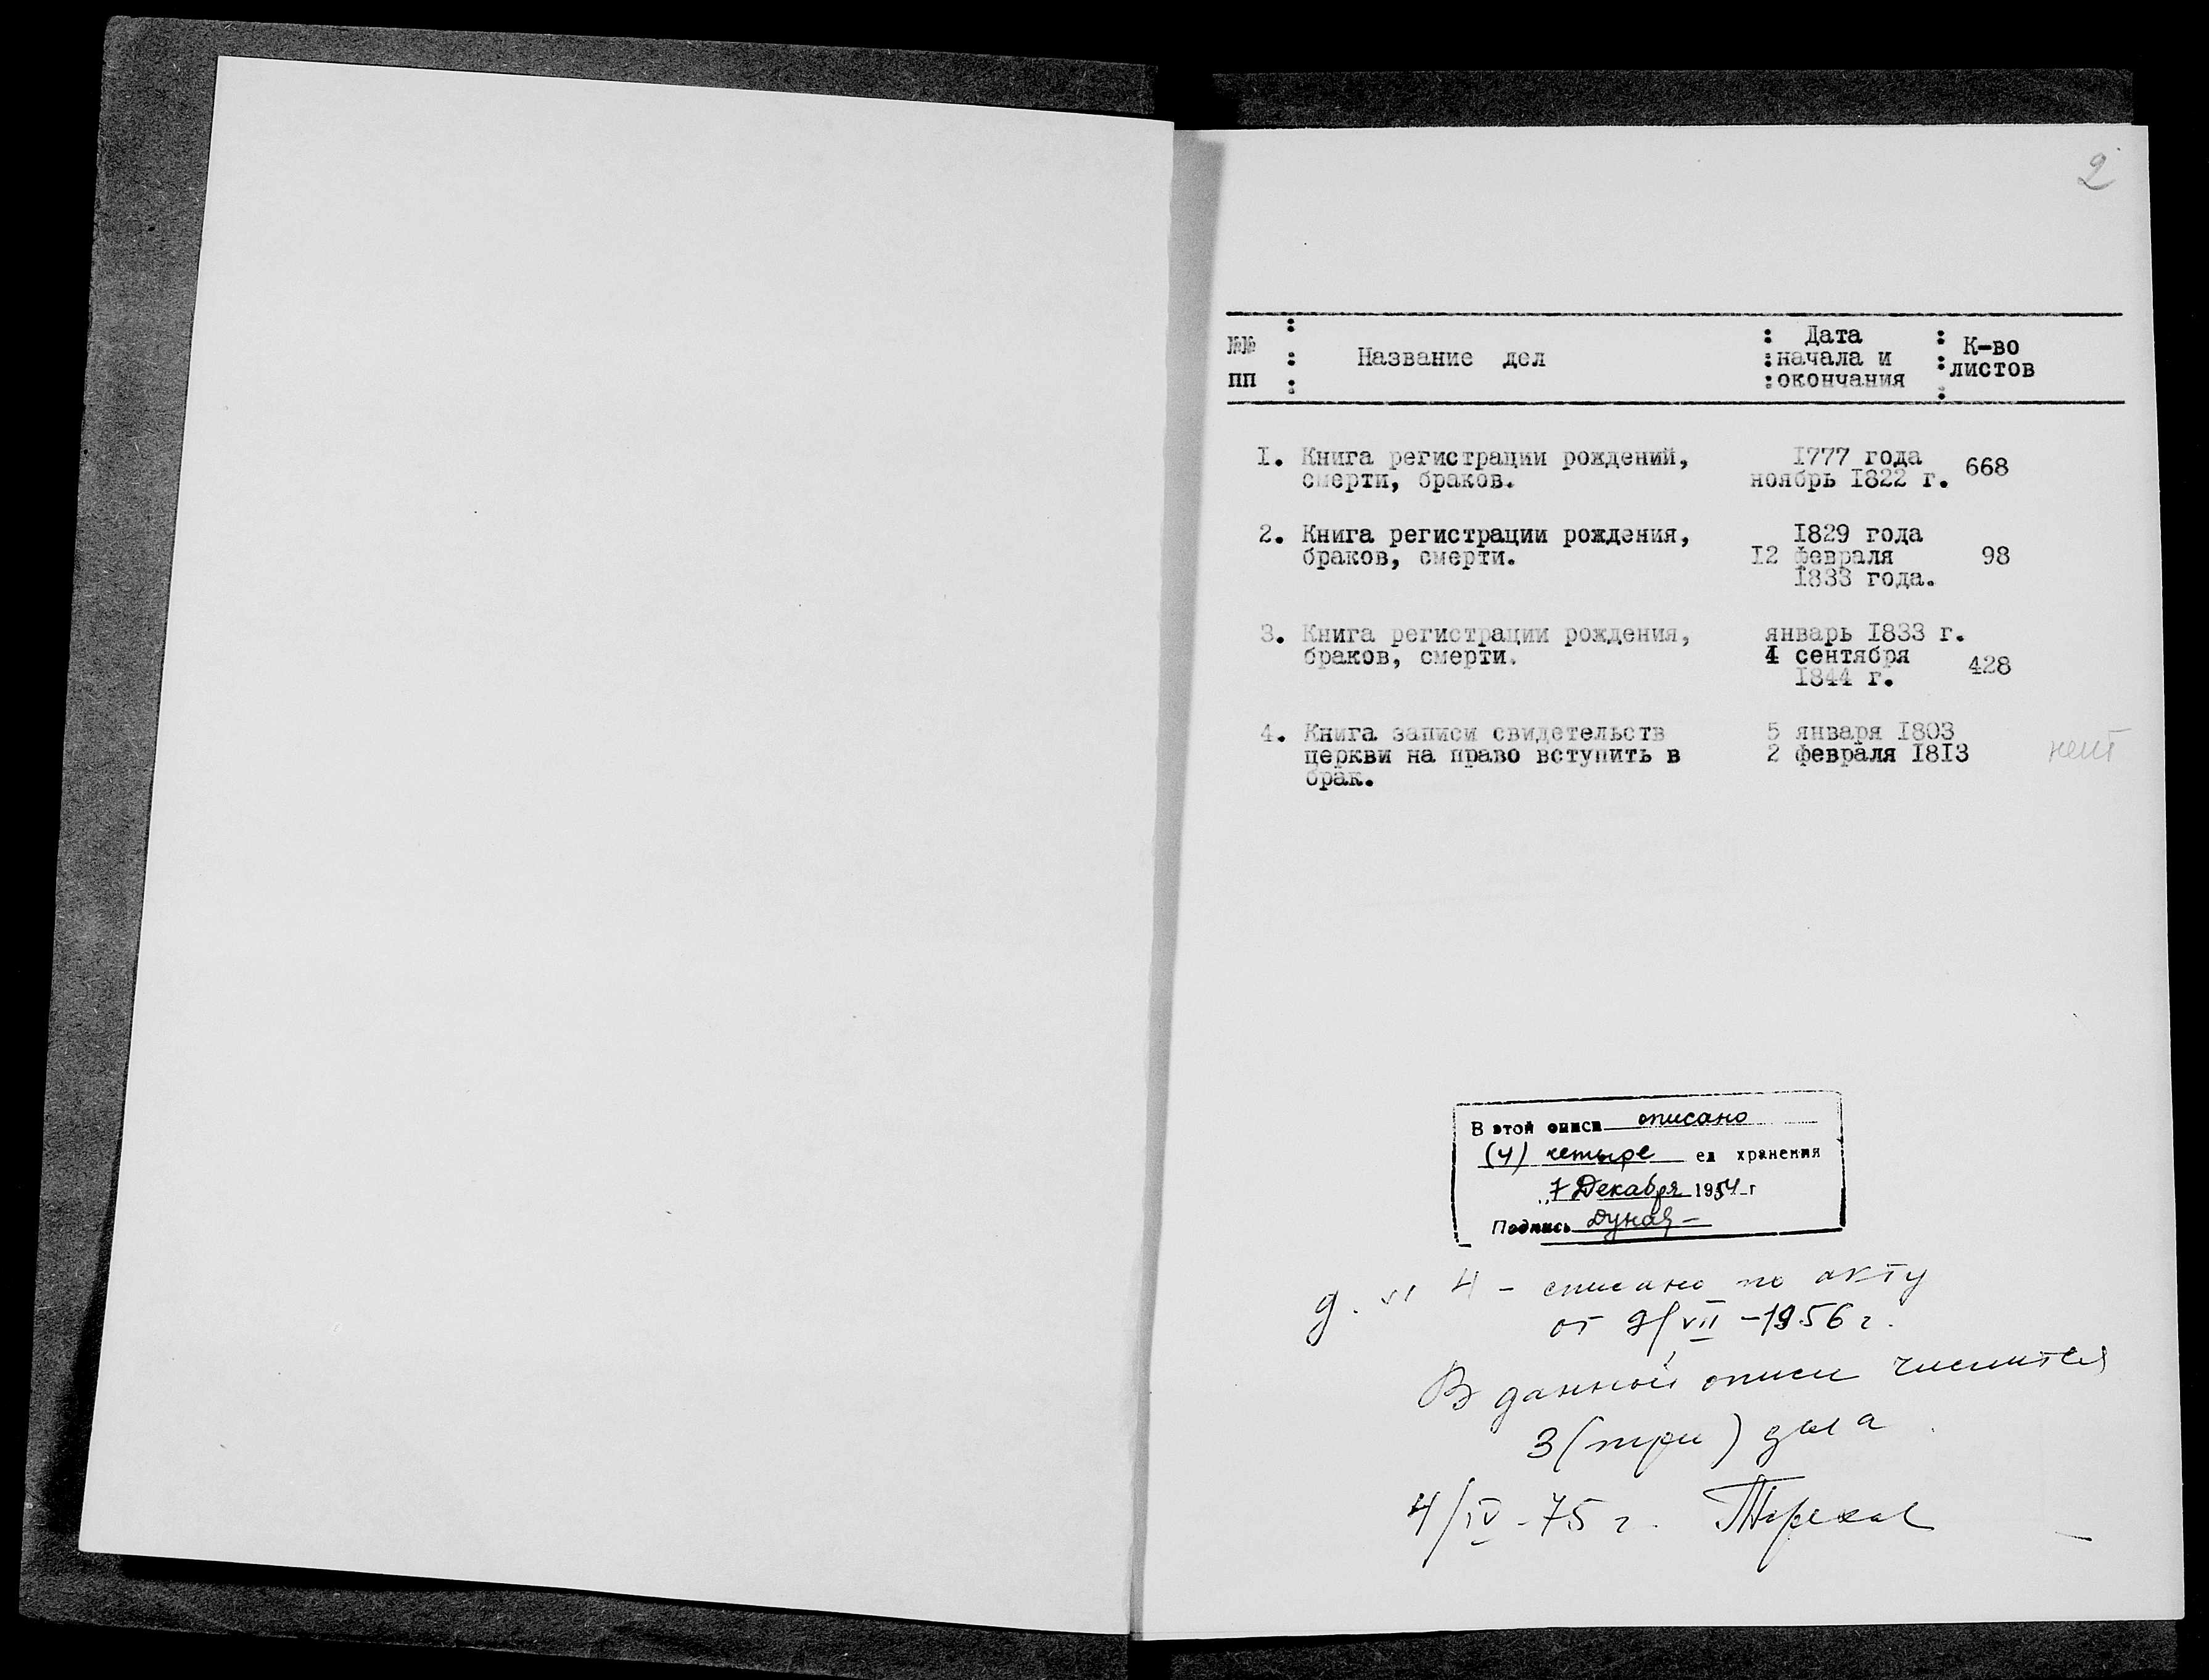 2
№№ : Название дел : Дата : К-во
пп : :начала и :листов
: :окончания :
I. Книга регистрации рождений, I777 года 668
смерти, браков. ноябрь I822 г.
2. Книга регистрации рождения, I829 года
браков, смерти. I2 февраля 98
I833 года.
3. Книга регистрации рождения, январь I833 г.
браков, смерти. 4 сентября 428
I844 г.
4. Книга записи свидетельств 5 января I803
церкви на право вступить в 2 февраля I8I3 нет
брак.
В этой описи описано
(4) четыре ед хранения
"7 Декабря 1954 г
Подпись
д. № 4 - списано по акту
от 9/VII - 1956 г.
В данной описи числится
3 (три) дела
4/IV - 75 г.